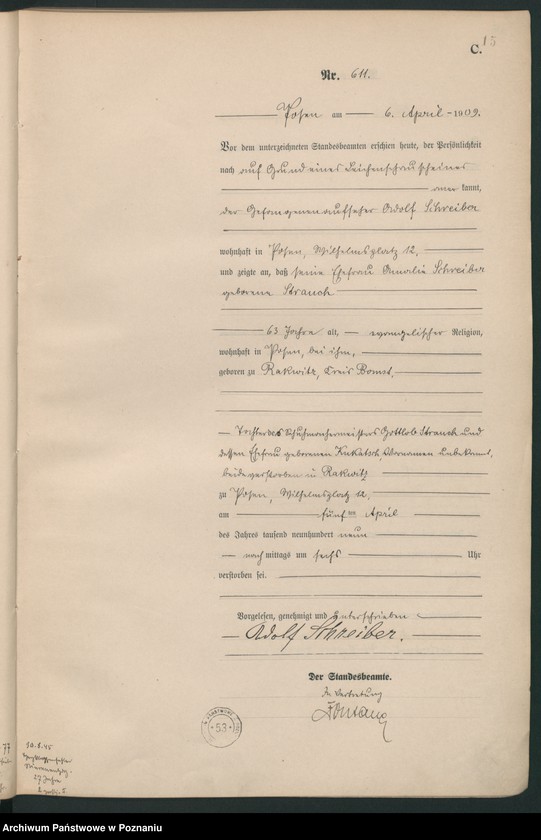 15
C.
Nr. 611.
Posen am 6. April 1909.
Vor dem unterzeichneten Standesbeamten erschien heute, der Persönlichkeit
nach auf Grund eines Leichenschauscheines
aner kannt,
der Gefangenenaufseher Adolf Schreiber
wohnhaft in Posen, Wilhelmsplatz 12,
und zeigte an, daß seine Ehefrau Amalie Schreiber
geborene Strauch
63 Jahre alt, evangelischer Religion,
wohnhaft in Posen, bei ihm,
geboren zu Rakwitz, Kreis Bomst,
Tochter des Schuhmachermeisters Gottlob Strauch und
dessen Ehefrau geborenen Kukatsch, Vornamen unbekannt,
beide verstorben in Rakwitz
zu Posen, Wilhelmsplatz 12,
am fünften April
des Jahres tausend neunhundert neun
nach mittags um sechs Uhr
verstorben sei.
Vorgelesen, genehmigt und unterschrieben
Adolf Schreiber.
Der Standesbeamte.
In Vertretung
Fontane
53
77
30.8.45
27 Jahre
Archiwum Państwowe w Poznaniu